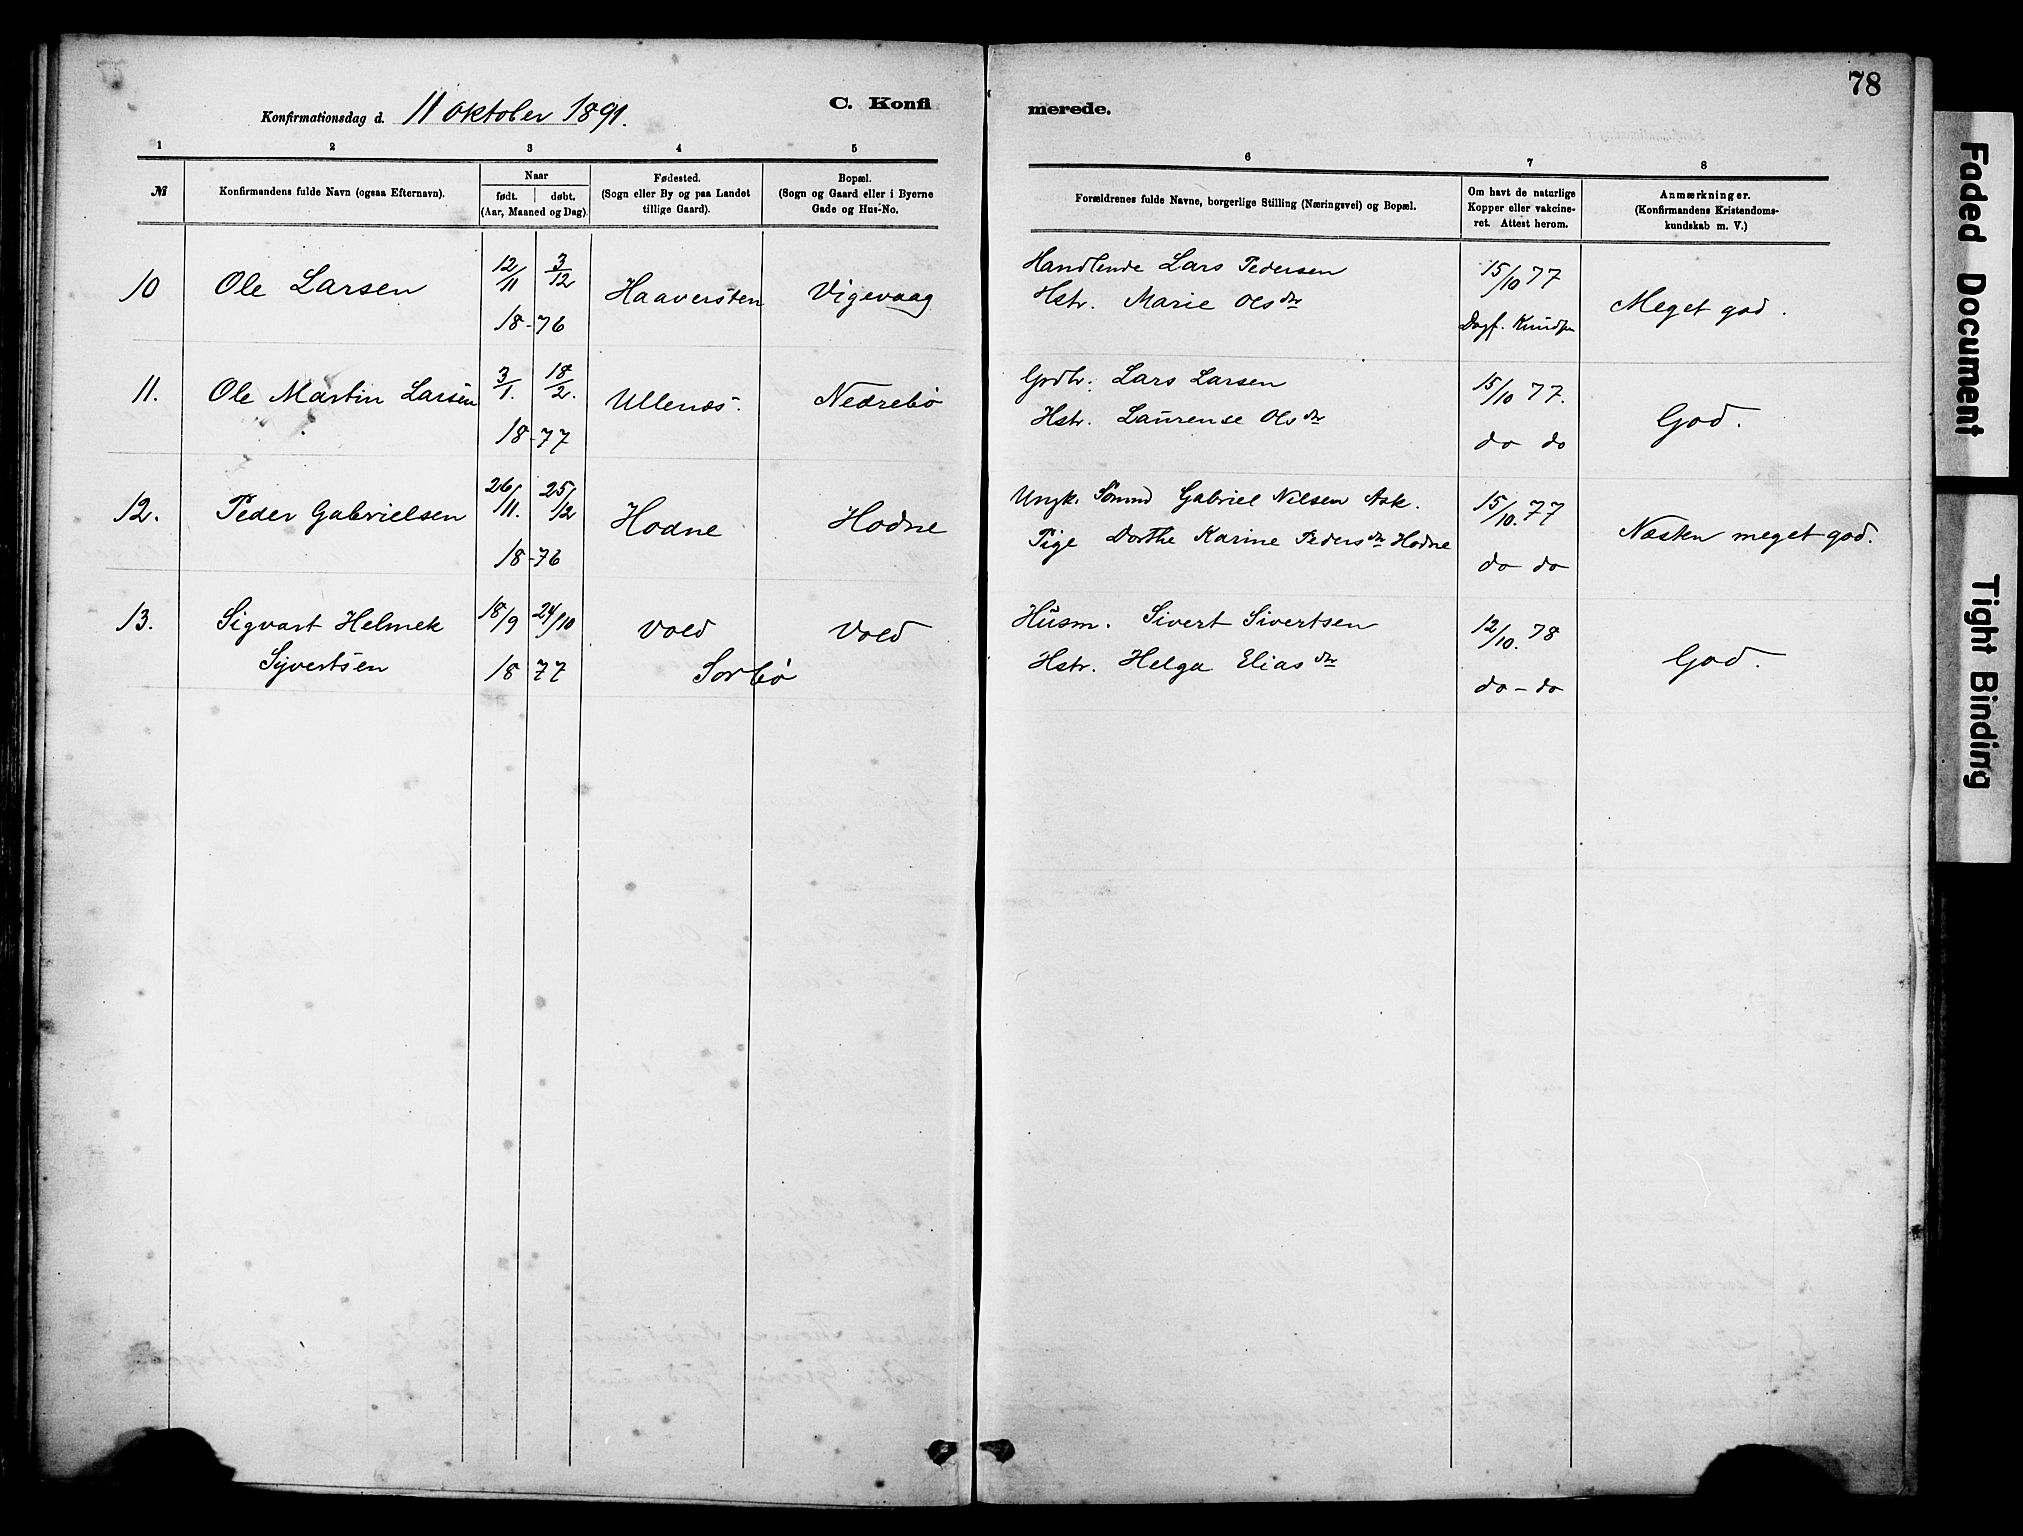 78
Konfirmationsdag d. 11 oktober 1891.
C. Konfi merede.
1 2 3 4 5 6 7 8
№
Konfirmandens fulde Navn (ogsaa Efternavn).
Naar
født. døbt.
(Aar, Maaned og Dag).
Fødested.
(Sogn eller By og paa Landet
tillige Gaard).
Bopæl.
(Sogn og Gaard eller i Byerne
Gade og Hus-No.
Forældrenes fulde Navne, borgerlige Stilling (Næringsvei) og Bopæl.
Om havt de naturlige
Kopper eller vakcine-
ret. Attest herom.
Anmærkninger.
(Konfirmandens Kristendoms-
kundskab m. V.)
10 Ole Larsen 12/11 3/12 Haaversten Vigevaag Handlende Lars Pedersen 15/10 77 Meget god.
18-76 Hstr. Marie Olsdtr Dagf. Knudsen
11. Ole Martin Larsen 3/1. 18/2. Ullenæs. Nedrebö Grdbr. Lars Larsen 15/10 77. God.
18-77 Hstr. Laurense Olsdtr do do
12. Peder Gabrielsen 26/11. 25/12 Hodne Hodne Ungk. Sömd Gabriel Nilsen Ask. 15/10. 77 Næsten meget god.
18-76 Pige Dorthe Karine Pedersdtr Hodne do do
13. Sigvart Helmek 18/9 24/10 Vold Vold Husm. Sivert Sivertsen 12/10. 78 God.
Syvertsen 18 77 Sorbö Hstr. Helga Eliasdtr do - do
Faded Document
Tight Binding